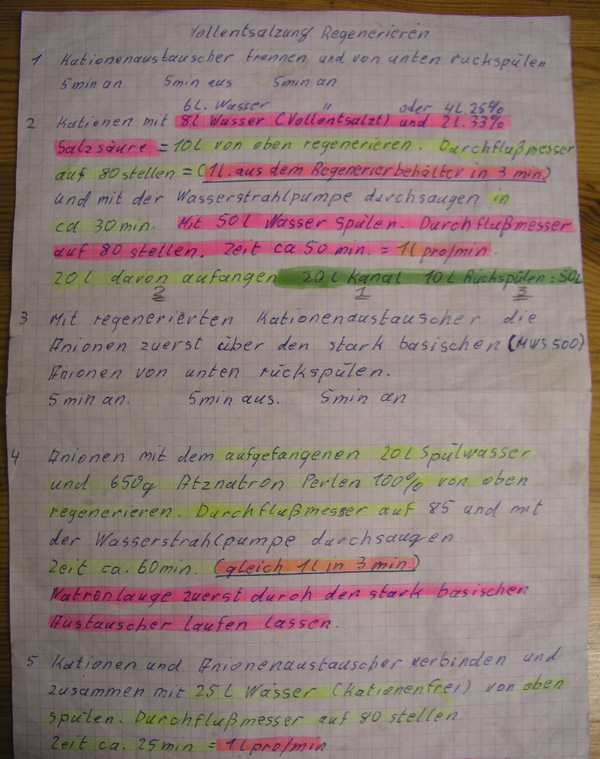 Vollentsalzung Regenerieren
1 Kationenaustauscher trennen und von unten rückspülen
5 min an 5 min aus 5 min an
6 L. Wasser " oder 4 L 25%
2 Kationen mit 8 L Wasser (Vollentsalzt) und 2 L. 33%
Salzsäure = 10 L von oben regenerieren. Durchflußmesser
auf 80 stellen = (1 L. aus dem Regenerierbehälter in 3 min)
und mit der Wasserstrahlpumpe durchsaugen in
ca 30 min. Mit 50 L Wasser spülen. Durchflußmesser
auf 80 stellen. Zeit ca 50 min. = 1 L pro/min.
20 L davon aufangen 20 L Kanal 10 L Rückspülen = 50L
2 1 3
3 Mit regenerierten Kationenaustauscher die
Anionen zuerst über den stark basischen (MWS 500)
Anionen von unten rückspülen.
5 min an. 5 min aus. 5 min an
4 Anionen mit dem aufgefangenen 20 L Spülwasser
und 650g Ätznatron Perlen 100% von oben
regenerieren. Durchflußmesser auf 85 und mit
der Wasserstrahlpumpe durchsaugen
Zeit ca. 60 min. (gleich 1 L in 3 min)
Natronlauge zuerst durch den stark basischen
Austauscher laufen lassen.
5 Kationen und Anionenaustauscher verbinden und
zusammen mit 25 L Wasser (Kationenfrei) von oben
spülen. Durchflußmesser auf 80 stellen
Zeit ca. 25 min = 1 L pro/min